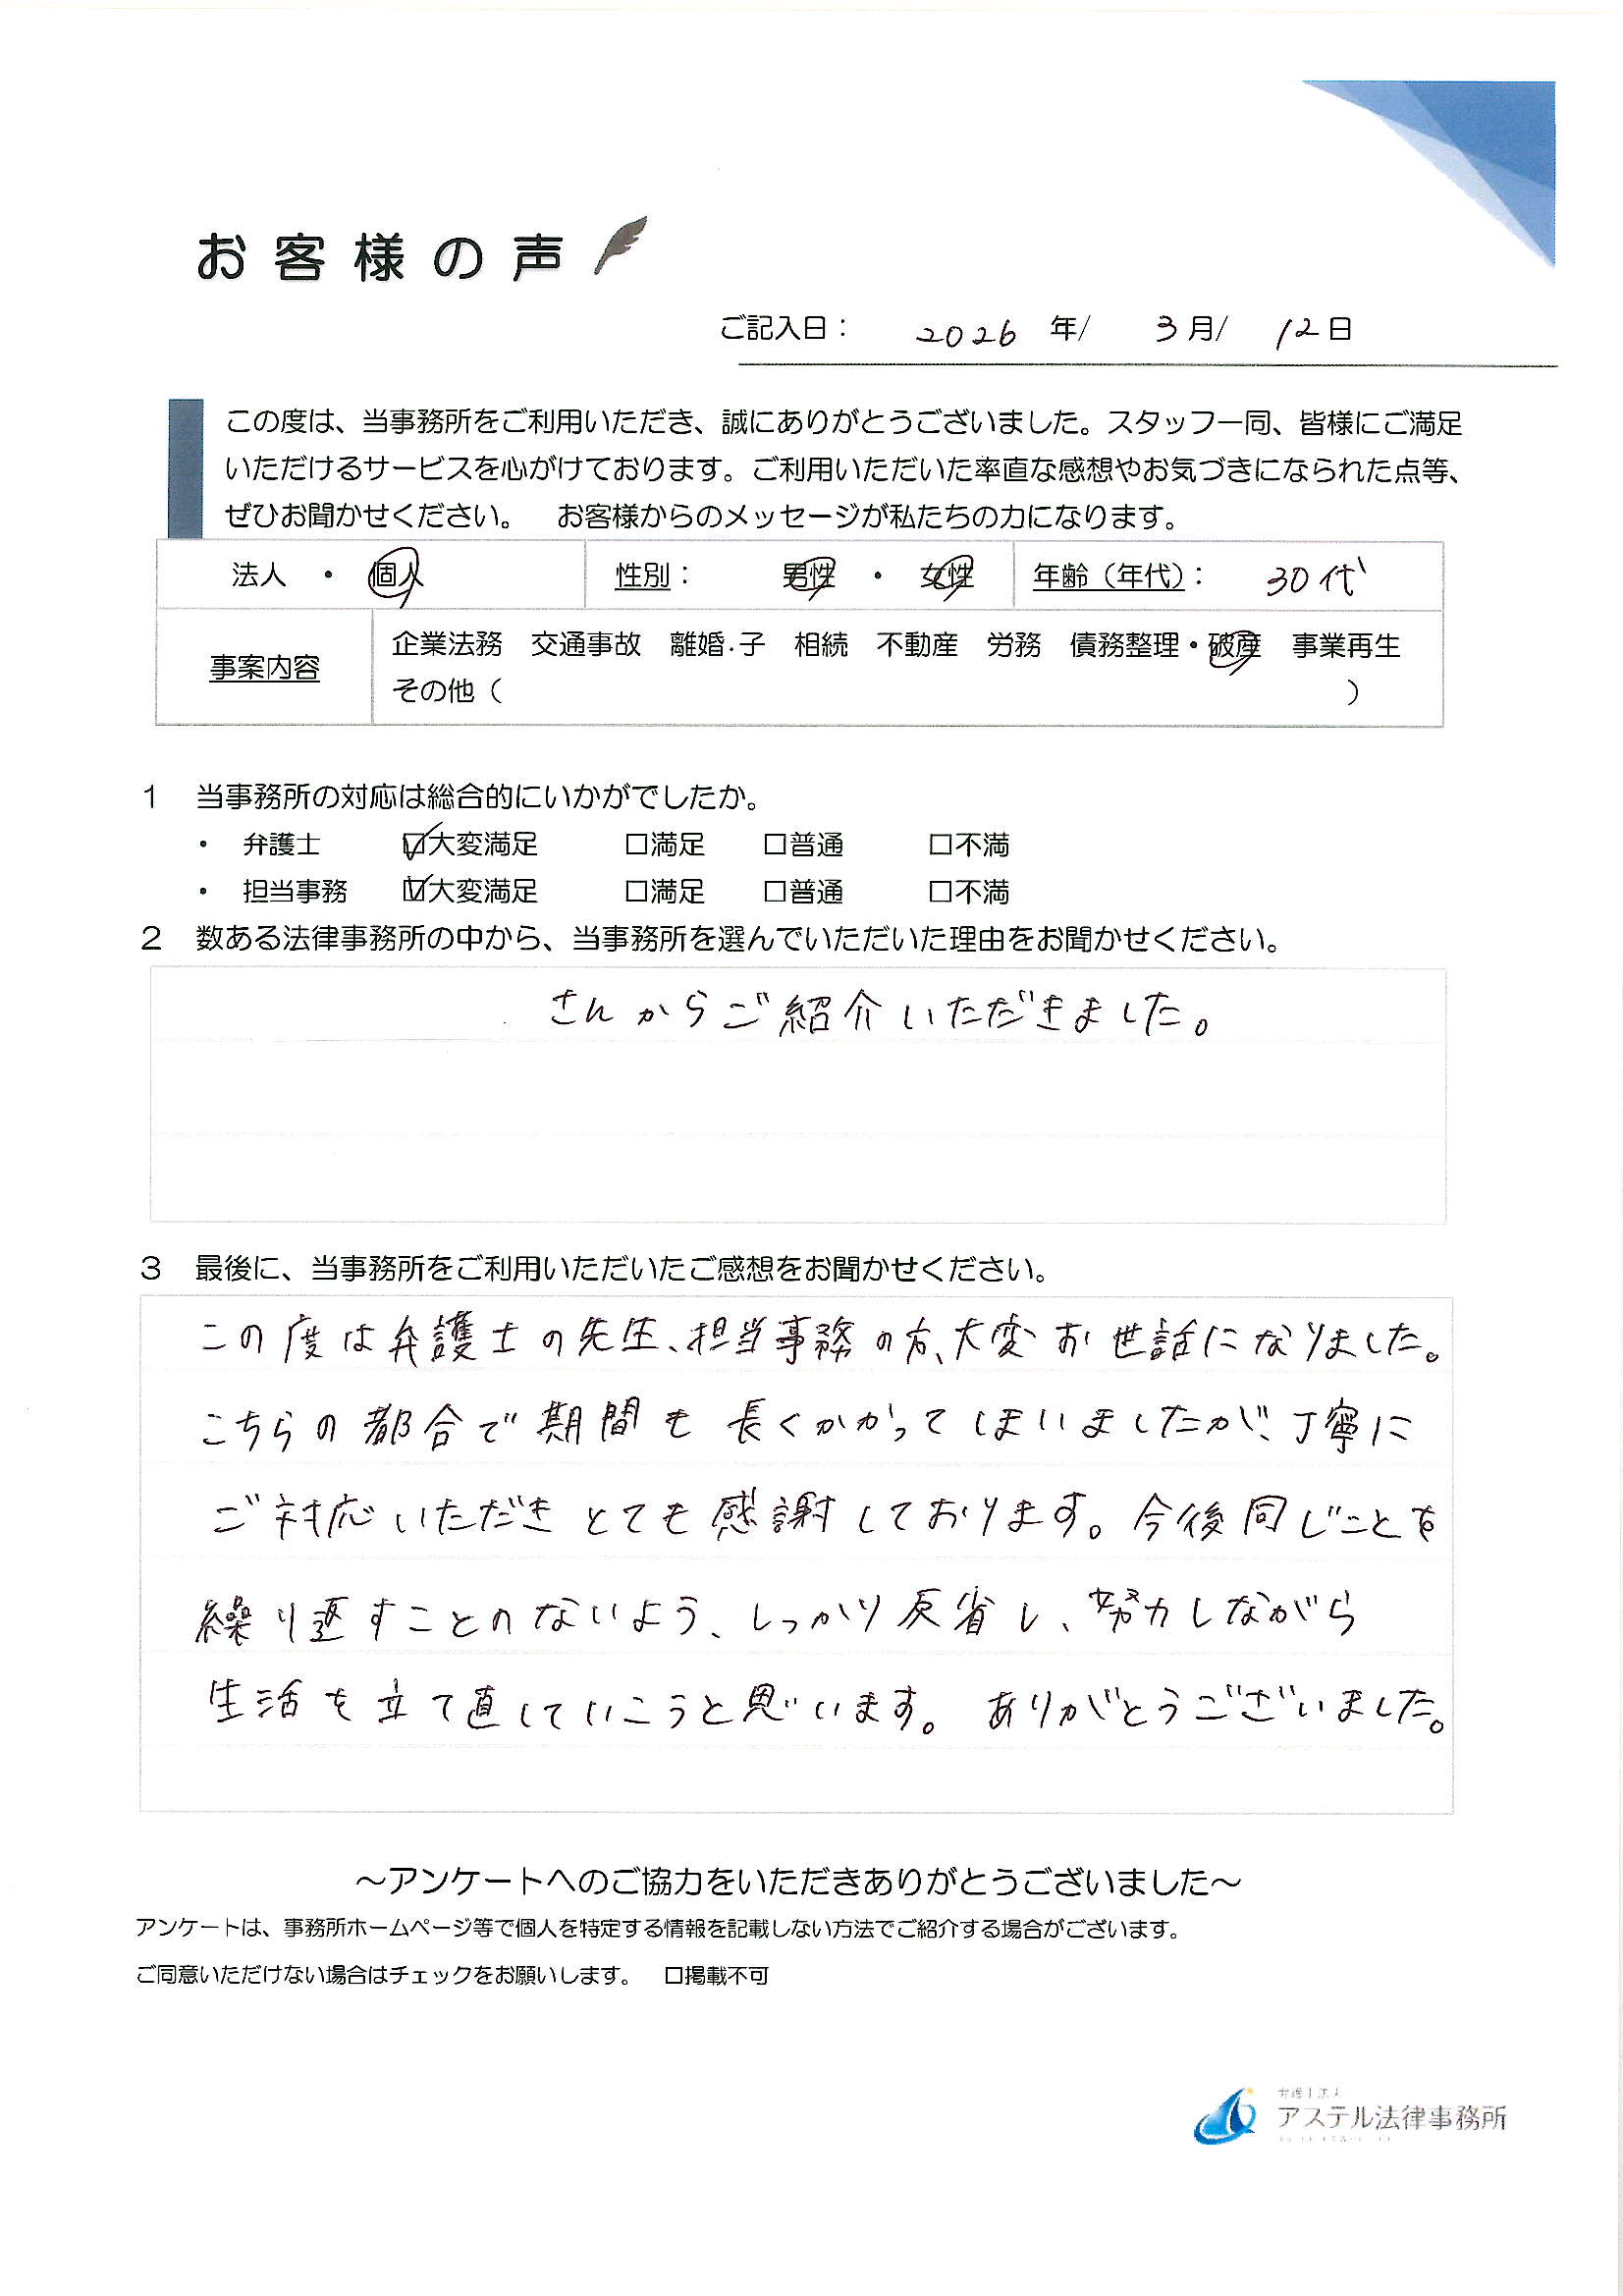 お客様の声
ご記入日： 2026 年/ 3月/ 12日
この度は、当事務所をご利用いただき、誠にありがとうございました。スタッフ一同、皆様にご満足
いただけるサービスを心がけております。ご利用いただいた率直な感想やお気づきになられた点等、
ぜひお聞かせください。　お客様からのメッセージが私たちの力になります。
法人　・　個人　性別：　男性　・　女性　年齢（年代）：　30代
事案内容
企業法務　交通事故　離婚・子　相続　不動産　労務　債務整理・破産　事業再生
その他（　　　）
1　当事務所の対応は総合的にいかがでしたか。
・　弁護士　☑大変満足　□満足　□普通　□不満
・　担当事務　☑大変満足　□満足　□普通　□不満
2　数ある法律事務所の中から、当事務所を選んでいただいた理由をお聞かせください。
さんからご紹介いただきました。
3　最後に、当事務所をご利用いただいたご感想をお聞かせください。
この度は弁護士の先生、担当事務の方、大変お世話になりました。
こちらの都合で期間も長くかかってしまいましたが、丁寧に
ご対応いただきとても感謝しております。今後同じことを
繰り返すことのないよう、しっかり反省し、努力しながら
生活を立て直していこうと思います。ありがとうございました。
～アンケートへのご協力をいただきありがとうございました～
アンケートは、事務所ホームページ等で個人を特定する情報を記載しない方法でご紹介する場合がございます。
ご同意いただけない場合はチェックをお願いします。　□掲載不可
弁護士法人
アステル法律事務所